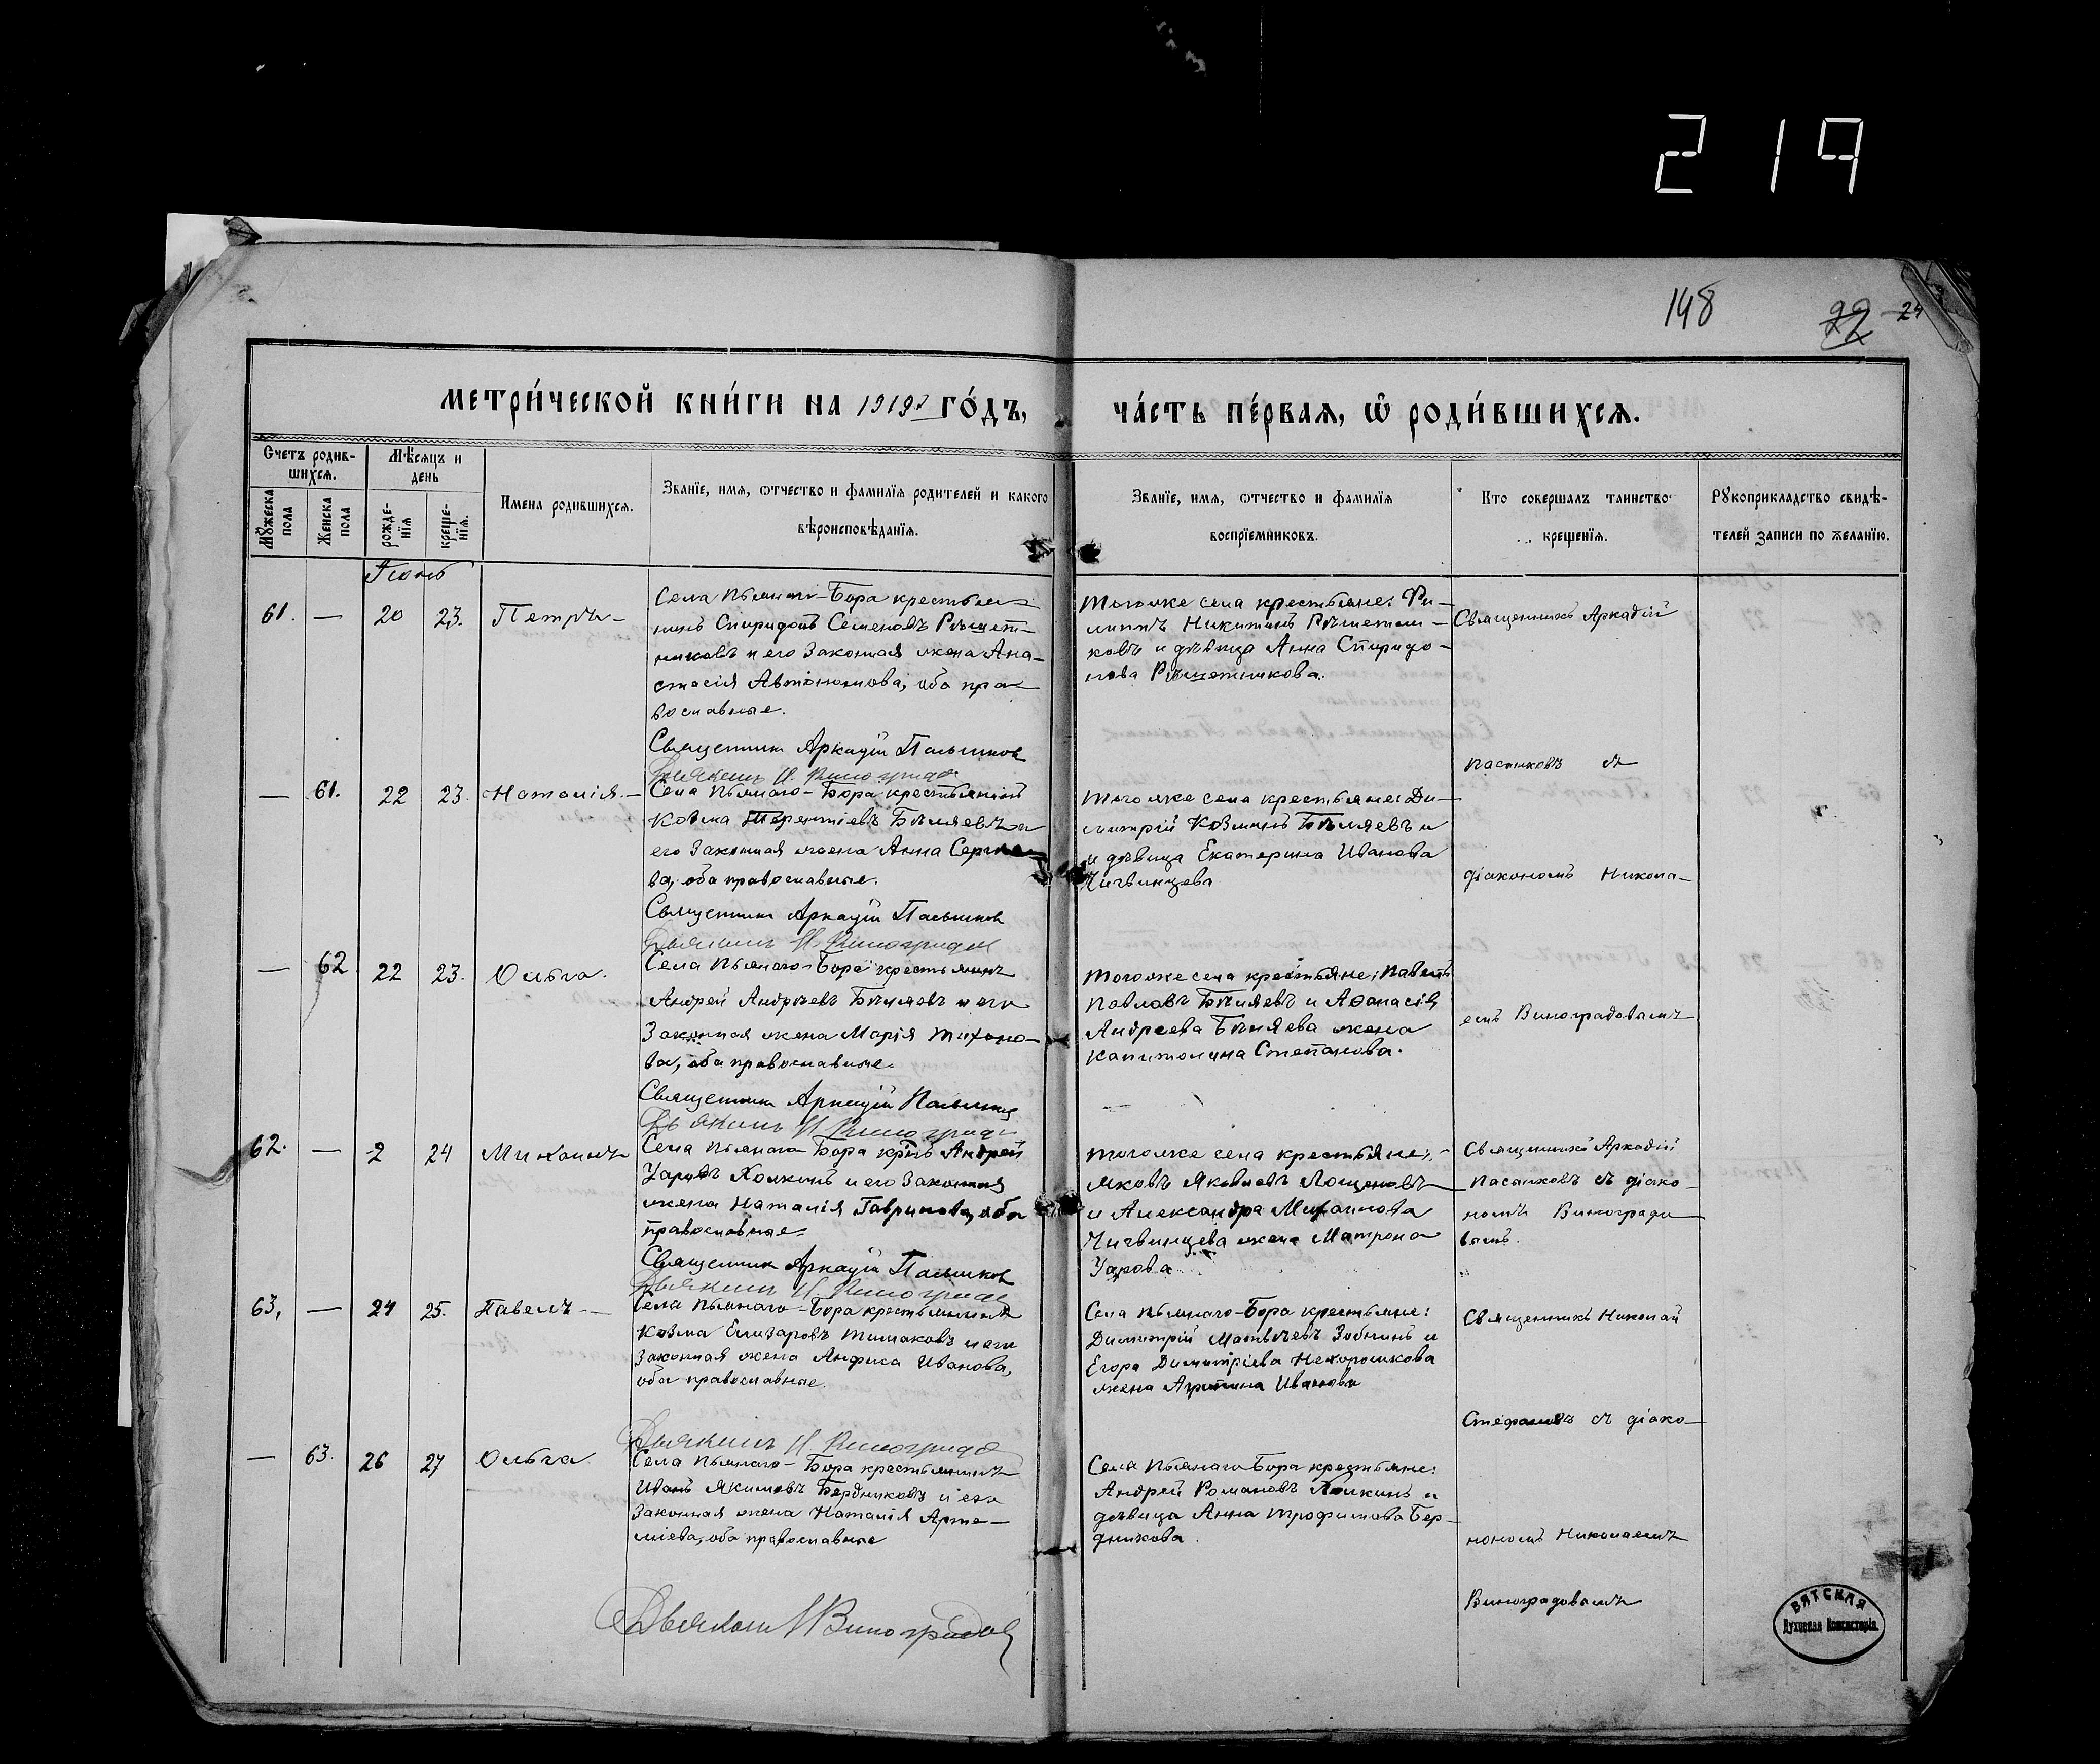 219
148
22 24
МЕТРИ́ЧЕСКОЙ КНИ́ГИ НА 1919 ГО́ДЪ,
ЧА́СТЬ ПЕ́РВАЯ, Ѡ РОДИ́ВШИХСЯ.
Счетъ родив-
шихся.
Мѣсяцъ и
день
Мужеска
пола
Женска
пола
рожде-
нїя
креще-
нїя.
Имена родившихся.
Званїе, имя, ѡтчество и фамилїя родителей и какого
вѣроисповѣданїя.
Званїе, имя, ѡтчество и фамилїя
воспрїемниковъ.
Кто совершалъ таинство
крещенїя.
Рукоприкладство свидѣ-
телей записи по желанїю.
Іюнь
61. — 20 23. Петръ
Села Пьянаго-Бора крестья-
нинъ Спиридонъ Семеновъ Рѣшет-
никовъ и его законная жена Ана-
стасія Автономова, оба пра-
вославные.
Священник Аркадій Пасынков
Дьяконъ Н. Виноградов
Тогоже села крестьяне: Фи-
липпъ Никитинъ Рѣшетни-
ковъ и дѣвица Анна Спиридо-
нова Рѣшетникова.
Священникъ Аркадій
Пасынковъ съ
— 61. 22 23. Наталія.
Села Пьянаго-Бора крестьянинъ
Козма Терентіевъ Бѣляевъ и
его законная жена Анна Сергѣе-
ва, оба православные.
Священник Аркадій Пасынков
Дьяконъ Н. Виноградов
Тогоже села крестьяне: Ди-
митрій Козминъ Бѣляевъ и
и дѣвица Екатерина Иванова
Чигвинцева
діакономъ Никола-
— 62 22 23. Ольга.
Села Пьянаго-Бора крестьянинъ
Андрей Андреевъ Бѣляевъ и его
законная жена Марія Тихоно-
ва, оба православные.
Священник Аркадій Пасынков
Дьяконъ Н. Виноградов
Тогоже села крестьяне: Павелъ
Павловъ Бѣляевъ и Аѳанасія
Андреева Бѣляева жена
Капитолина Степанова.
емъ Виноградовымъ
62. — 2 24 Михаилъ
Села Пьянаго Бора крнъ Андрей
Уаровъ Холкинъ и его законная
жена Наталія Гаврилова, оба
православные
Священник Аркадій Пасынков
Дьяконъ Н. Виноградов
Тогоже села крестьяне:
Яковъ Яковлевъ Лощеновъ
и Александра Михаилова
Чигвинцева жена Матрона
Уарова
Священникъ Аркадій
Пасынковъ съ діако-
номъ Виноградо-
вымъ.
63, — 24 25. Павелъ
Села Пьянаго-Бора крестьянинъ
Козма Елизаровъ Тишаковъ и его
законная жена Анфиса Иванова,
оба православные.
Дьяконъ Н. Виноградов
Села Пьянаго-Бора крестьяне:
Димитрій Матвѣевъ Зобнинъ и
Егора Димитріева Нехорошкова
жена Иванова
Священникъ Николай
Стефановъ съ діако-
— 63. 26 27 Ольга
Села Пьянаго-Бора крестьянинъ
Иванъ Якимовъ Бердниковъ и его
законная жена Наталія Арте-
міева, оба православные
Дьякон Н Виноградов
Села Пьянаго Бора крестьяне:
Андрей Романовъ Холкинъ и
дѣвица Анна Трофимова Бер-
дникова.
нономъ Николаемъ
Виноградовымъ
ВЯТСКАЯ
Духовная Консисторія.